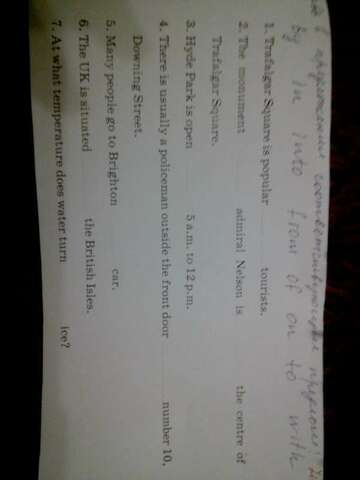 в предложения соответствующие предлоги
by in into from of on to with
1. Trafalgar Square is popular tourists.
2. The monument admiral Nelson is the centre of
Trafalgar Square.
3. Hyde Park is open 5 a.m. to 12 p.m.
4. There is usually a policeman outside the front door number 10,
Downing Street.
5. Many people go to Brighton car.
6. The UK is situated the British Isles.
7. At what temperature does water turn ice?